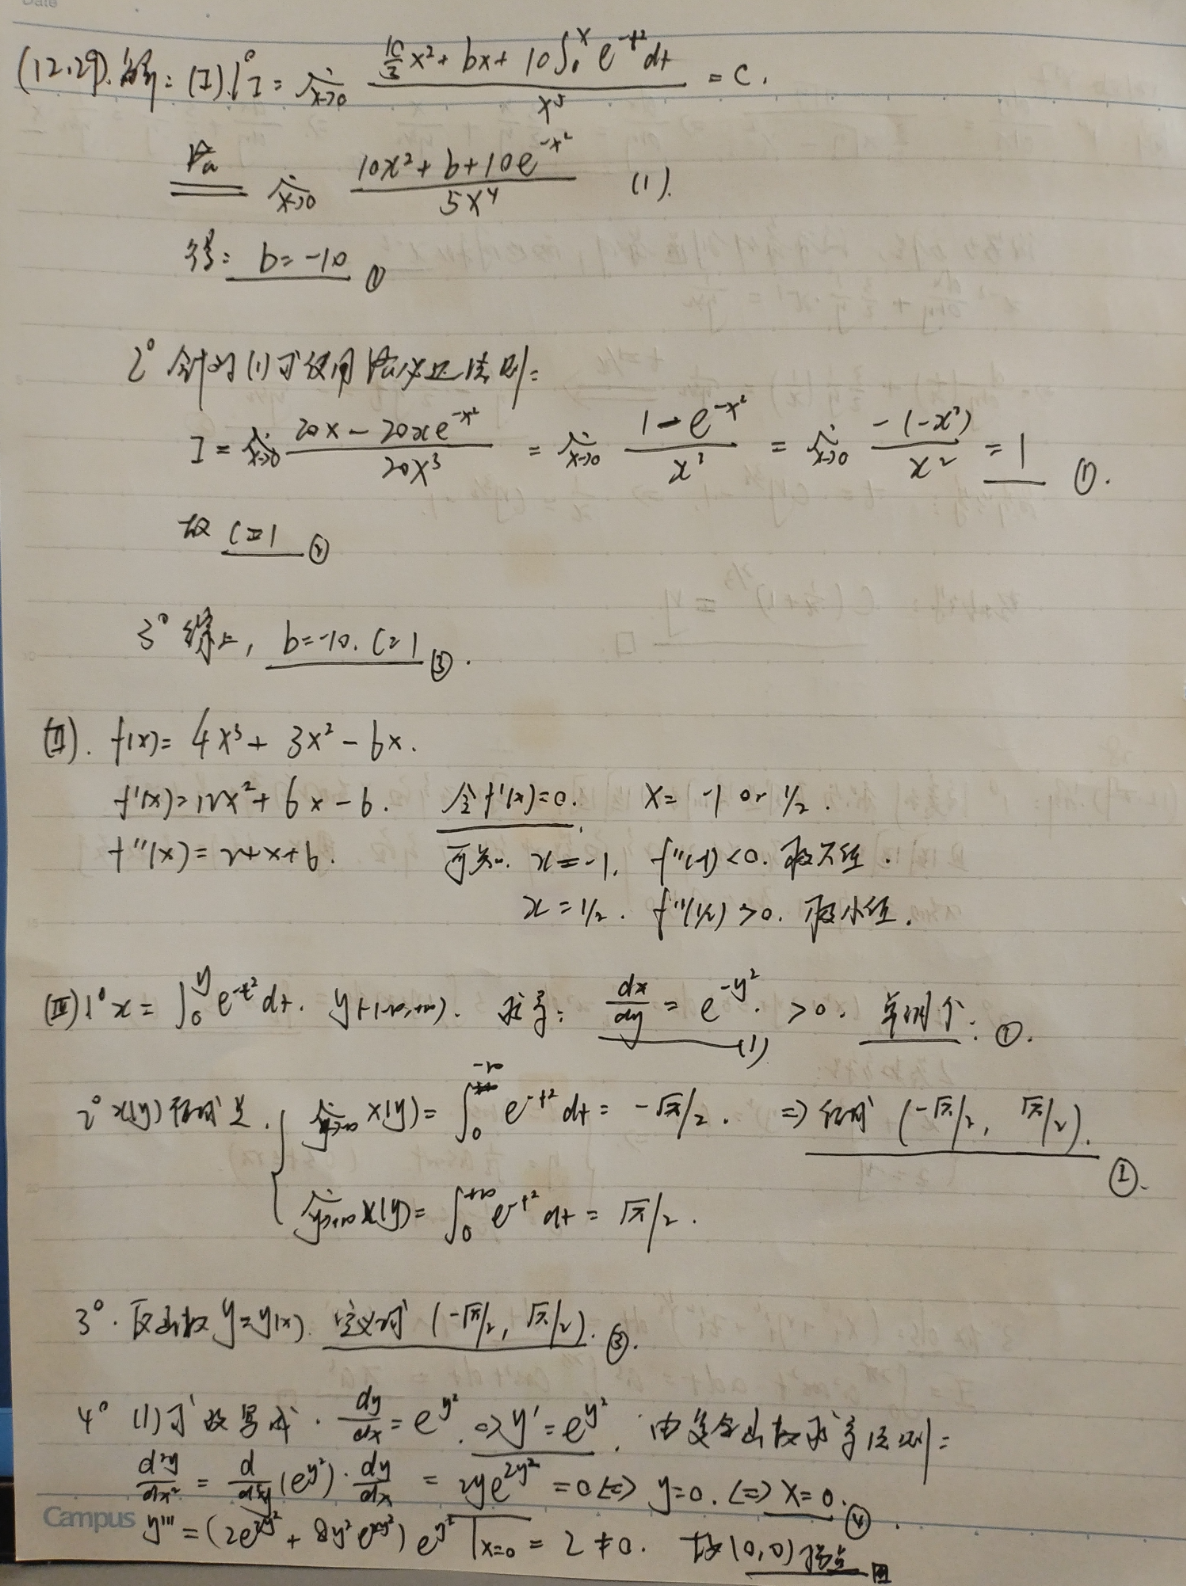 (12.29). 解: (I) 1° I = lim_{x→0} (10/3 x² + bx + 10∫₀ˣ e^{-t²}dt) / x⁵ = C.
洛 lim_{x→0} (10x² + b + 10e^{-x²}) / 5x⁴ (1).
得: b = -10 ①
2° 针对(1)式使用洛必达法则:
I = lim_{x→0} (20x - 20xe^{-x²}) / 20x³ = lim_{x→0} (1 - e^{-x²}) / x² = lim_{x→0} -(-x²) / x² = 1 ①.
故 C=1 ②
3° 综上, b=-10. C=1 ③.
(II). f(x) = 4x³ + 3x² - 6x.
f'(x) = 12x² + 6x - 6. 令f'(x)=0. x = -1 or 1/2.
f''(x) = 24x + 6. 可知. x = -1, f''(-1) < 0. 极大值.
x = 1/2. f''(1/2) > 0. 极小值.
(III) 1° x = ∫₀^y e^{-t²}dt. y∈(-∞,+∞). 求导: dx/dy = e^{-y²}. > 0. (1) 单调个: ①.
2° x(y)值域是. { lim_{y→-∞} x(y) = ∫₀^{-∞} e^{-t²}dt = -√π/2. ⇒ 值域 (-√π/2, √π/2). ②.
lim_{y→+∞} x(y) = ∫₀^{+∞} e^{-t²}dt = √π/2.
3°. 反函数 y=y(x) 定义域 (-√π/2, √π/2). ③.
4° (1)式改写成. dy/dx = e^{y²}. ⇒ y' = e^{y²}. 由复合函数求导法则:
d²y/dx² = d/dy (e^{y²}) · dy/dx = 2ye^{2y²} = 0 ⇔ y=0. ⇔ x=0. ④.
Campus
y''' = (2e^{2y²} + 8y²e^{2y²}) e^{y²} |_{x=0} = 2 ≠ 0. 故(0,0)拐点